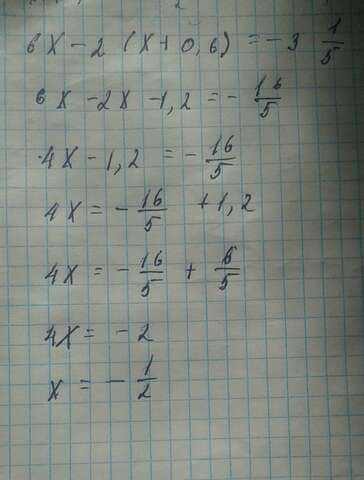 6x - 2 (x + 0,6) = -3 1/5
6x - 2x - 1,2 = - 16/5
4x - 1,2 = - 16/5
4x = - 16/5 + 1,2
4x = - 16/5 + 6/5
4x = - 2
x = - 1/2